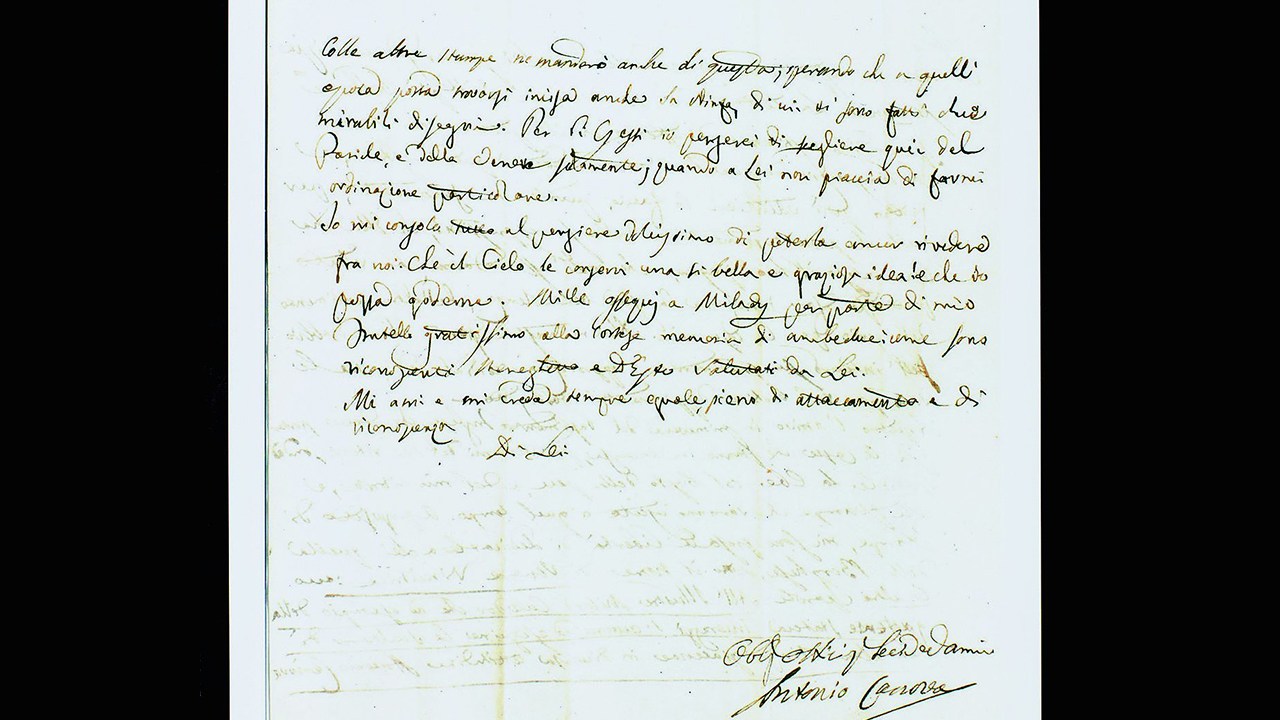 Colle altre stampe ne manderò anche di questa; sperando che a quell'
epoca possa trovarsi incisa anche la Ninfa, di cui si sono fatti due
mirabili disegni. Per li Gessi io penserei di scegliere quei del
Paride, e della Venere solamente; quando a Lei non piaccia di farmi
ordinazione particolare.
Io mi consolo al pensiere dolcissimo di poterla ancor rivedere
fra noi. Che il Cielo le conservi una sì bella e graziosa idea! e che io
possa goderne. Mille ossequj a Milady per parte di mio
fratello gratissimo alla cortese memoria di ambedue; come sono
riconoscenti e D'Este salutati da Lei.
Mi ami e mi creda sempre eguale, pieno di attaccamento e di
riconoscenza
Di Lei
Antonio Canova